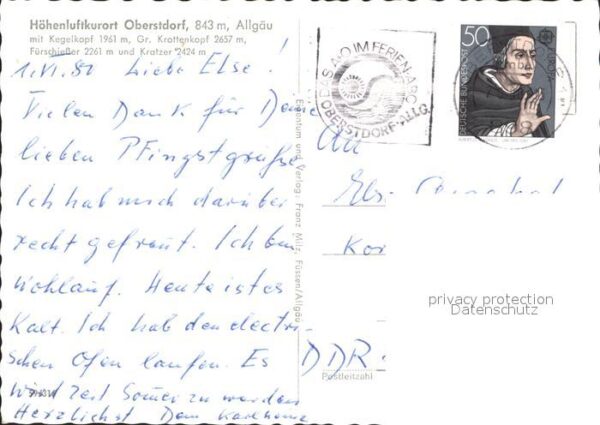 Höhenluftkurort Oberstdorf, 843 m, Allgäu
mit Kegelkopf 1961 m, Gr. Krottenkopf 2657 m,
Fürschießer 2261 m und Kratzer 2424 m
1.VI.80 Liebe Else!
Vielen Dank für Deine
lieben Pfingstgrüße
Ich hab mich darüber
recht gefreut. Ich bin
wohlauf. Heute ist es
Kalt. Ich hab den electri-
schen Ofen laufen. Es
wird Zeit Somer zu werden
Herzlichst Dein Karlheinz
Eigentum und Verlag: Franz Milz, Füssen/Allgäu
IM FERIEN-ABC
OBERSTDORF-ALLG.
50
DEUTSCHE BUNDESPOST
EUROPA
An
Else
DDR-
Postleitzahl
privacy protection
Datenschutz